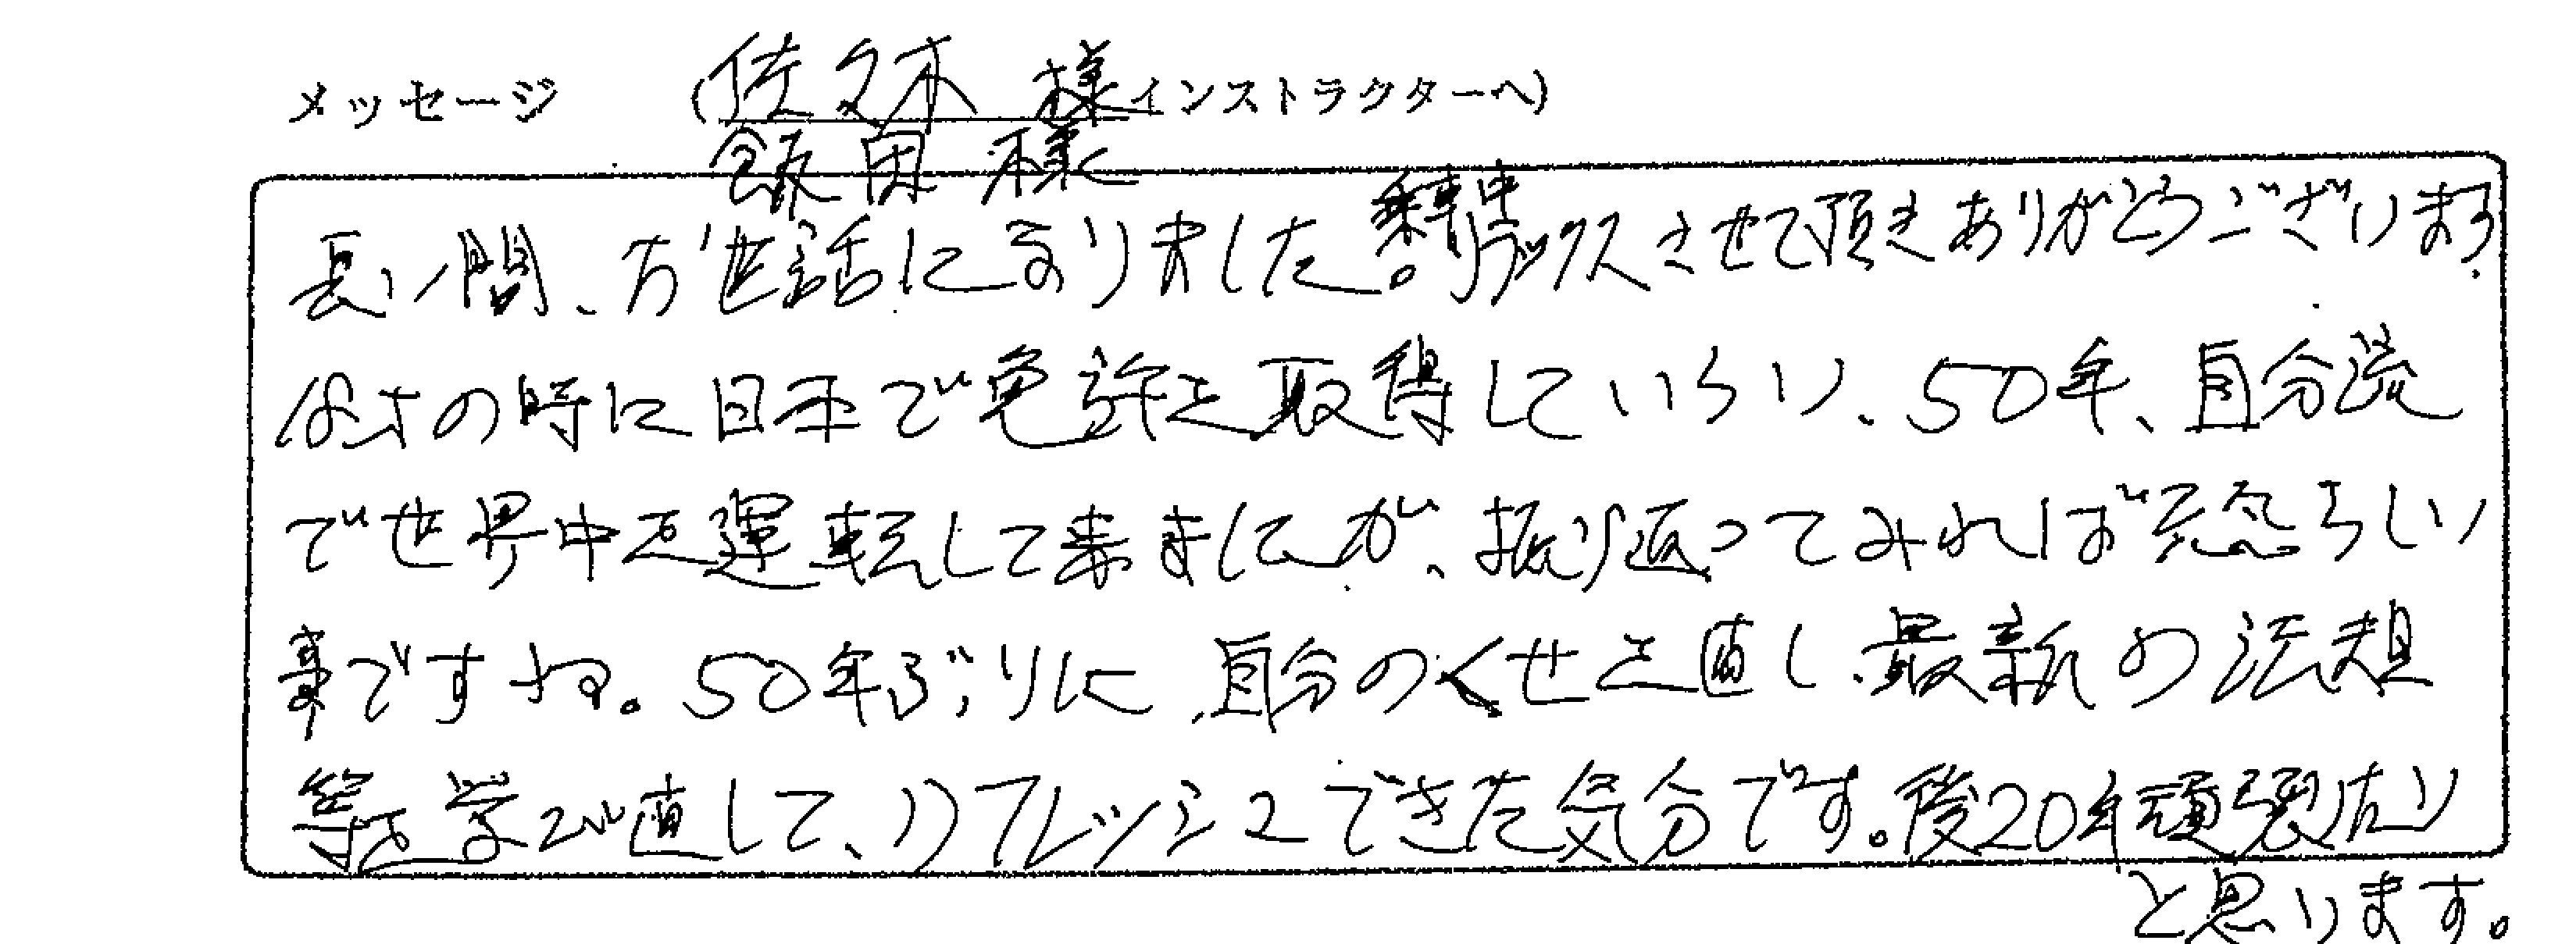 メッセージ (佐々木 様インストラクターへ)
飯田 様
長い間、お世話になりました。乗車中リラックスさせて頂きありがとうございます。
18才の時に日本で免許を取得していらい、50年、自分流
で世界中を運転して来ましたが、振り返ってみれば恐ろしい
事ですね。50年ぶりに、自分のくせを直し、最新の法規
等を学び直して、リフレッシュできた気分です。後20年頑張りたい
と思います。